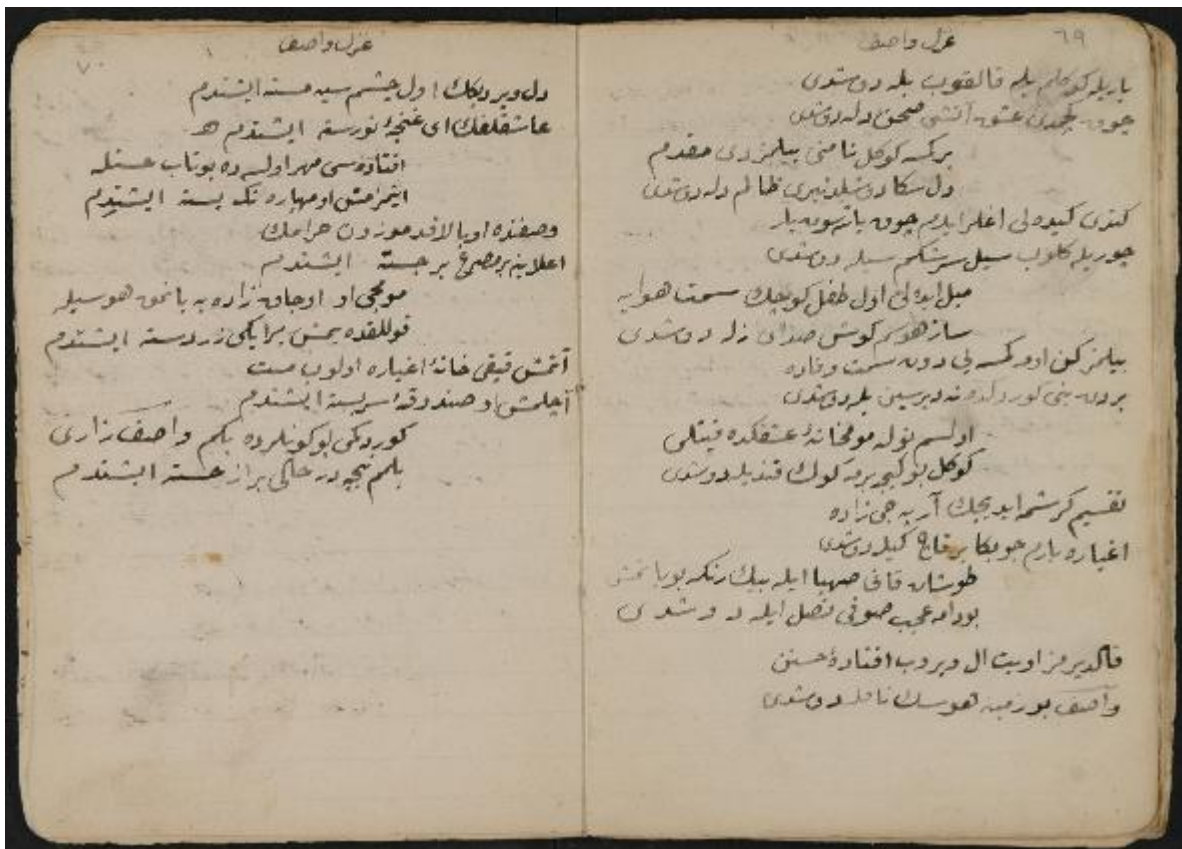 ٦٩
غزل واصف
یار یله کوکلم یله قالقوب یله دوشدی
چون عشق آتشی صحن دله دوشدی
بر کسه کوکل نامنی بیلمزدی مقدم
دل سکا دوشلدنبری ظالم دله دوشدی
کندی کیده لی اغلر ایدم چون
جوریله کلوب سیل سرشکم سیله دوشدی
میل ایده لی اول طفل کوچک سمت هوایه
ساز هوسم کوش صدای زله دوشدی
بیلمزکن او کسه لی دون سمت وفاده
بردن بنی کوردکده نه دیرسین بله دوشدی
اولسم نوله مومخانۀ عشقکده فیتلی
کوکل بو کیجه بر کوله قندیله دوشدی
تقسیم کرشمه ایدیجك آرپه جی زاده
اغیاره یارم جو بکا بر قاچ کیله دوشدی
طوشان قانی صهبا ایله بیك رنکه بویانمش
بودامه عجب صوفی فصل ایله دوشدی
قالدیرمز او بت ال ویروب افتادۀ حسنن
واصف بو زمینه هوسك نافله دوشدی
٧٠
غزل واصف
دل ویردیکك اول چشم سیه مسته ایشتدم
عاشقلغك ای غنچۀ نورسته ایشتدم
افتاده سی مهر اولسه ده بوتاب عسله
ایتمزمش او مهپاره تك بسته ایشتدم
وصفنده او بالا قد موزون خرامك
اعلا ینه بر مصرع برجسته ایشتدم
مومجی او اوجاق زاده یه یانمق هوسیله
قوللقده یمش بر ایکی زردسته ایشتدم
آتمش فیقی خانۀ اغیاره اولوب مست
آچلمش او صندوقۀ سربسته ایشتدم
کوردکمی بو کونلرده بکم واصف زاری
بلمم نیجه در حالی براز خسته ایشتدم